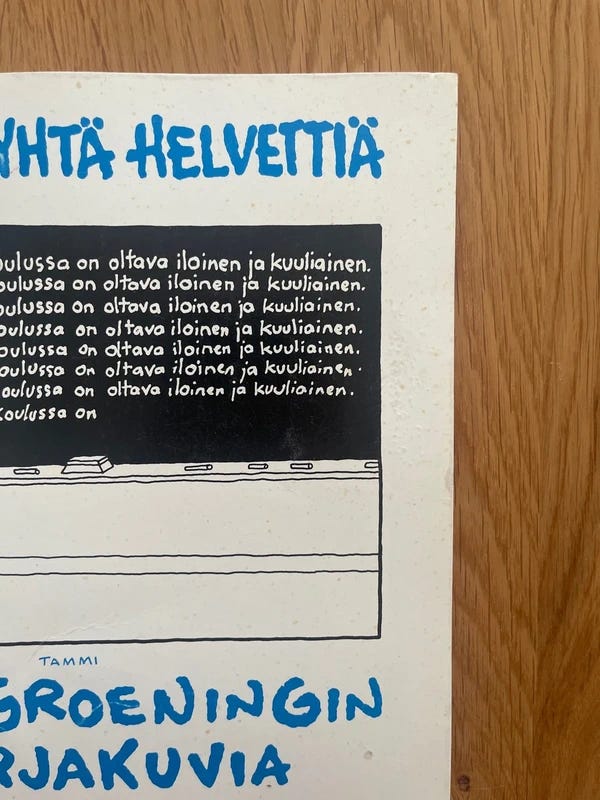 YHTÄ HELVETTIÄ
oulussa on oltava iloinen ja kuuliainen.
oulussa on oltava iloinen ja kuuliainen.
oulussa on oltava iloinen ja kuuliainen.
oulussa on oltava iloinen ja kuuliainen.
oulussa on oltava iloinen ja kuuliainen.
oulussa on oltava iloinen ja kuuliainen.
oulussa on oltava iloinen ja kuuliainen.
Koulussa on
TAMMI
GROENINGIN
RJAKUVIA